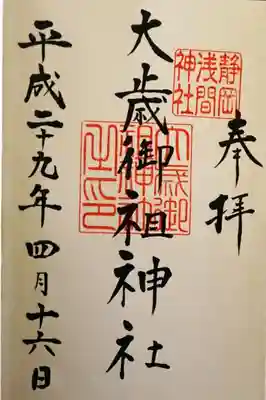 奉拝
静岡
浅間
神社
大歳御祖神社
平成二十九年四月十六日